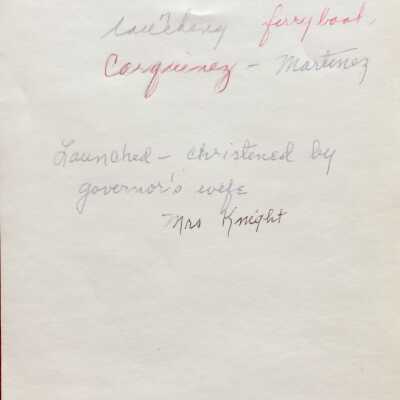 Launching ferry boat,
Carquinez – Martinez
Launched – christened by
governor's wife
Mrs Knight